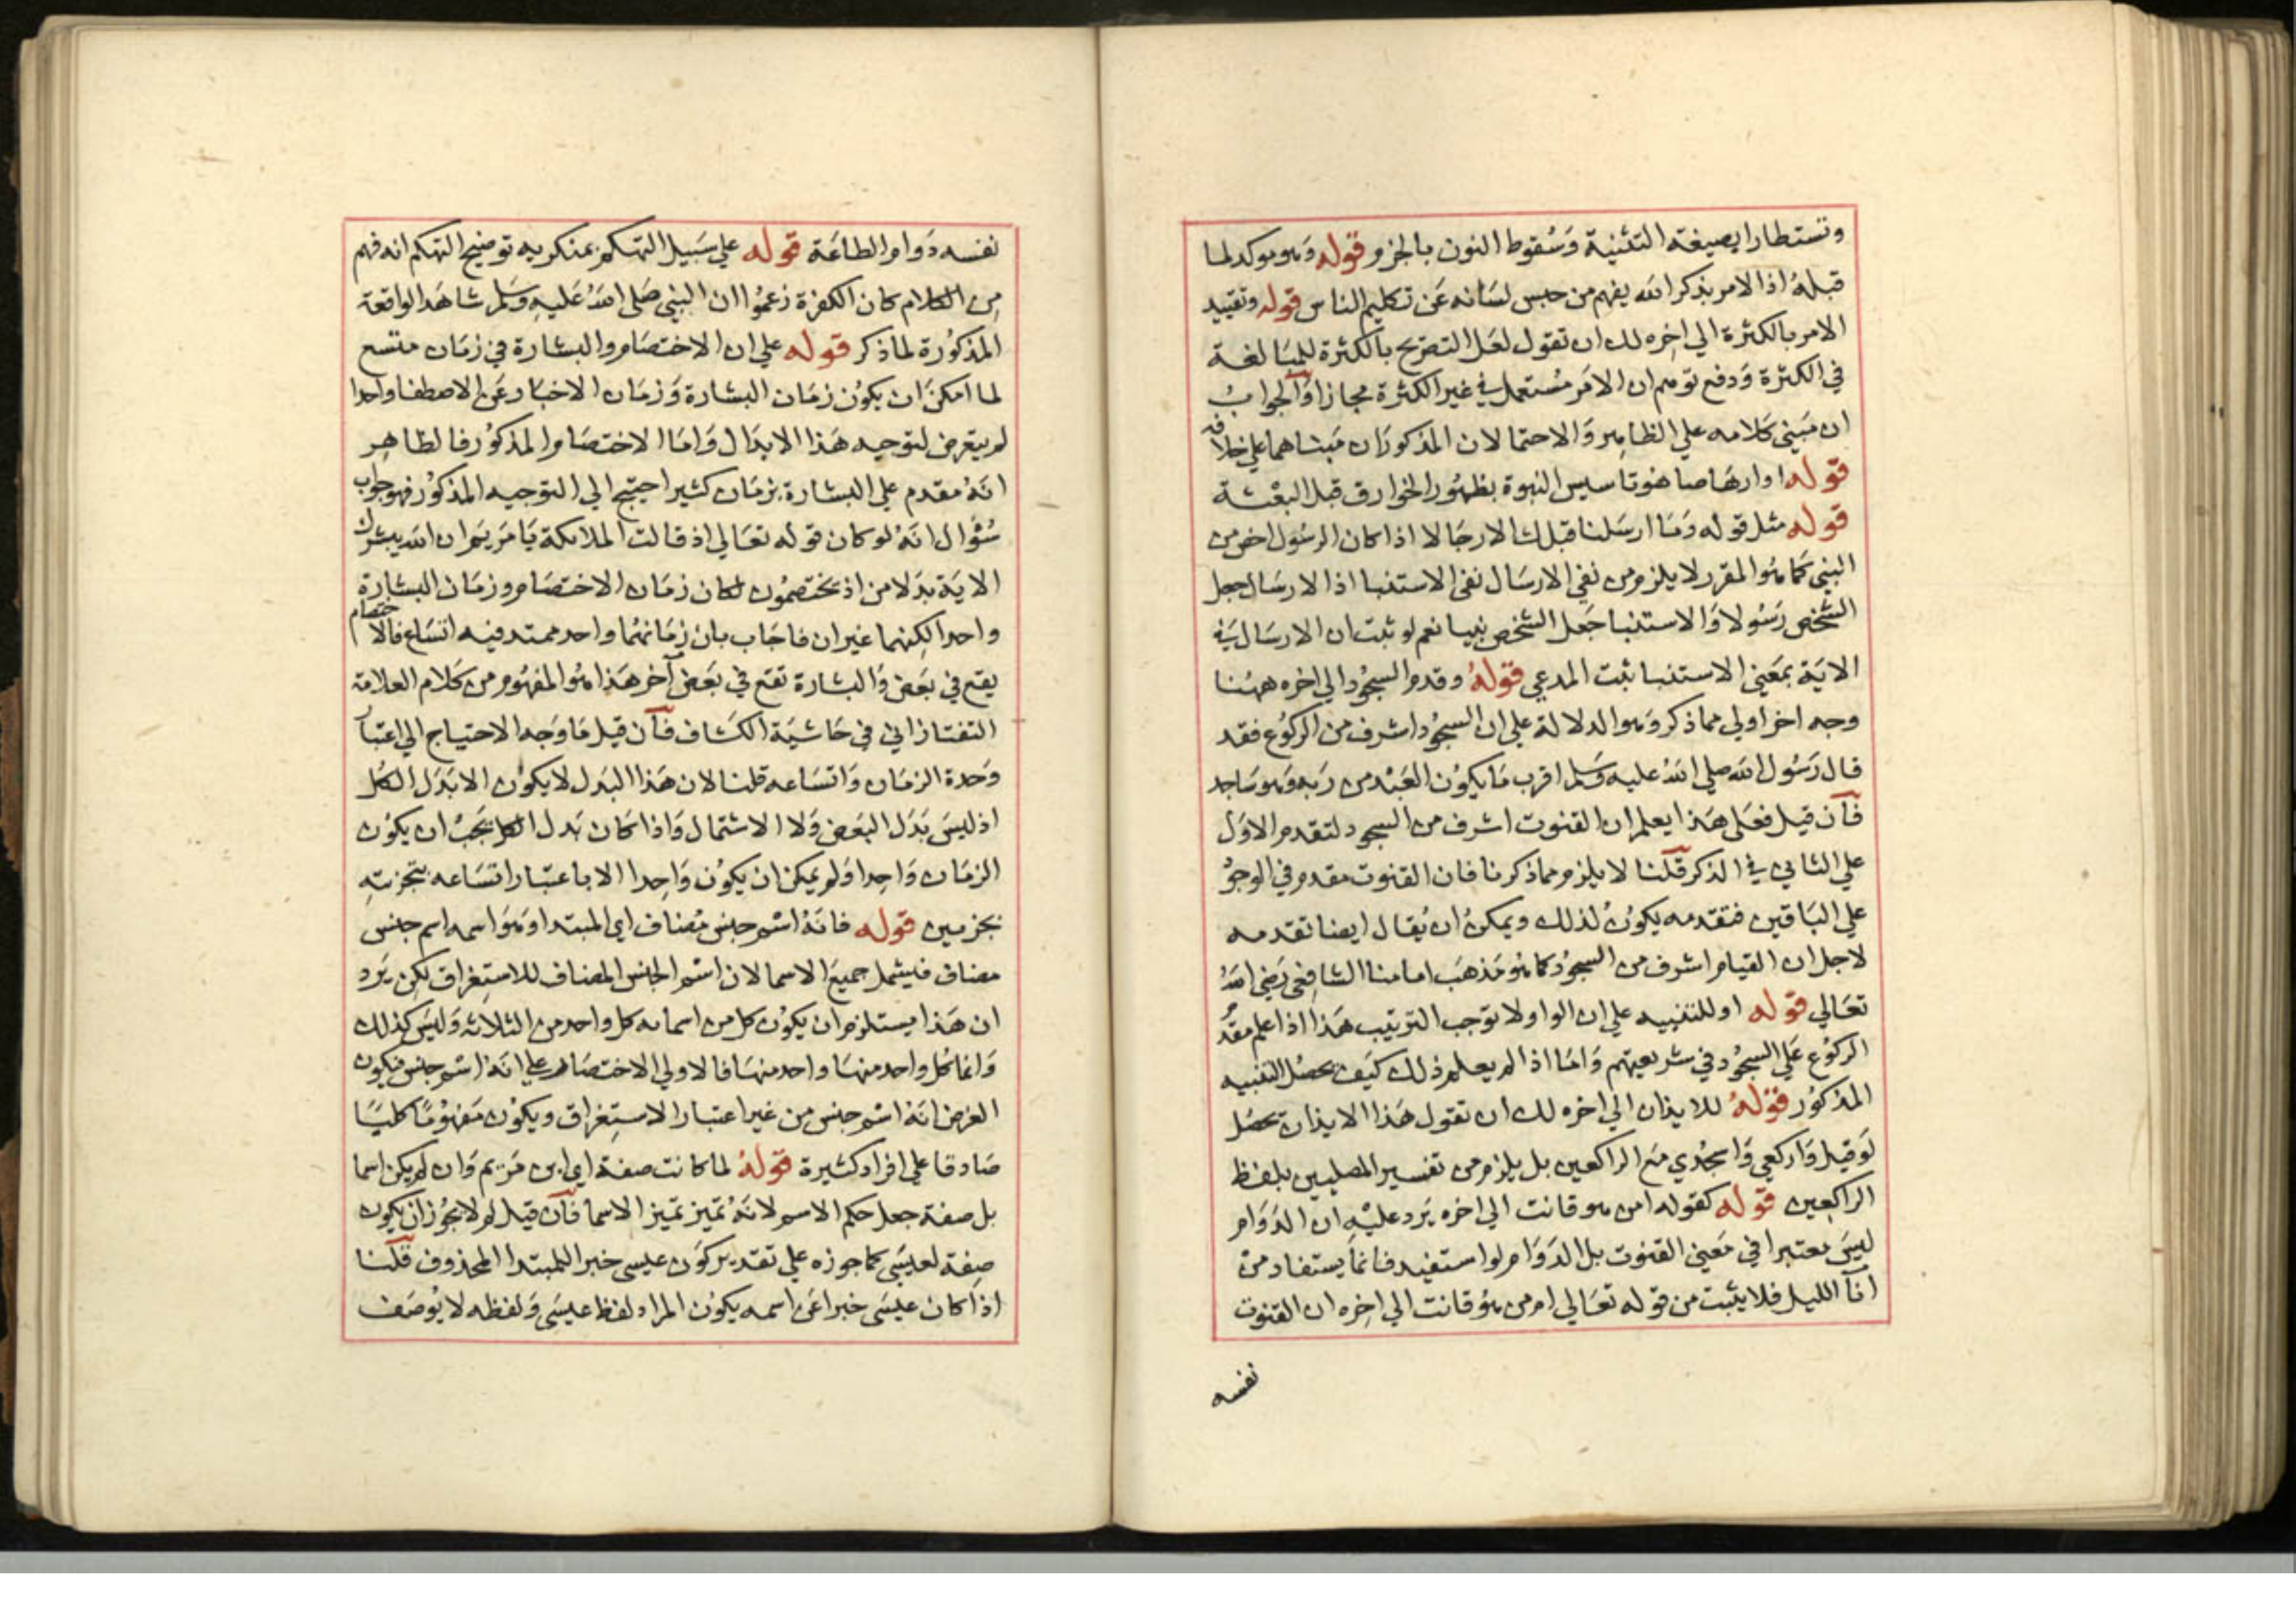 وتستطارا بصيغة التثنية وَسُقوط النون بالجزم قوله وَهو موكد لما
قبله اذ الامر بذكر الله يفهم من حبس لسَانه عَن تكليم الناس قوله وتقييد
الامر بالكثرة الي اخره لك ان تقول لعَل التصَريح بالكثرة للمبَالغة
في الكثرة وَدفع توهم ان الامَر مسُتعمل في غير الكثرة مجازا وَالجوابُ
ان مَبني كلامه علي الظاهر وَالاحتمالان المذكوَران مَبناهما علي خلافه
قوله او ارهَاصا هوتا سيس النبوة بظهُور الخوارق قبل البعْثة
قوله مثل قوله وَمَا ارسَلنا قبلك الارجَالا اذا كان الرسُول اخص من
النبي كمَا هوُ المقرر لا يلزم من نفي الارسَال نفي الاستنبا اذ الارسَال جعل
الشخص رَسُولا وَالاستنبا جَعل الشخص نبيا نعم لو ثبت ان الارسَال في
الايَة بمعَني الاستنبا ثبت المدعي قولهُ وقدم السجُود الي اخره ههُنا
وجه اخر اولي مما ذكر وَهو الدلالة علي ان السجُود اشرف من الركوُع فقد
قال رَسُول الله صلي اللهُ عليه وَسَلم اقرب مَا يكوُن العَبْد من رَبه وَهو سَاجد
فآن قيل فعَلي هَذا يعلم ان القنوت اشرف من السجود لتقدم الاوَل
علي الثاني في الذكر قلنا لا يلزم مما ذكرنا فان القنوت مقدم في الوجوْ
علي البَاقين فتقدمه يكوُن لذلك ويمكنُ ان يُقال ايضا تقدمه
لاجل ان القيام اشرف من السجوُد كما هوُ مَذهبَ امامنا الشافعي رَضي اللهُ
تعَالي قوله او للتنبيه علي ان الواو لا توجب الترتيب هَذا اذا علم مقدُ
الركوُع عَلي السجُود في شريعتهم وَامَا اذا لم يعلم ذلك كيَف يحصُل التنبيه
المذكوُر قوْلهُ للايذان الي اخره لك ان تقول هَذا الايذان يحصُل
لوَقيل وَاركعي وَاسجُدي مَع الراكعين بل يلزم من تفسير المصليين بلفظ
الراكِعين قوله كقوله امن هو قانت الي اخره يَرد عليْهِ ان الدَوَام
ليسَ معتبرا في مَعني القنوت بل الدَوَام لو استفيد فانما يستفاد من
انآ الليل فلا يثبت من قوله تعَالي امن هوُ قانت الي اخِره ان القنوت
نفسه
نفسه دَوام الطاعَة قوله علي سَبيل التهكم بمنكريه توضيح التهكم انه فهم
من الكلام كان الكفرة زعمُوا ان النبي صَلي اللهُ عَليهِ وسَلم شاهَد الواقعة
المذكوُرة لما ذكر قوله علي ان الاختصَام والبشارة في زمَان متسع
لما امكنَ ان يكوُن زمَان البشارة وَزمَان الاخبَار عَن الاصطفا واحدا
لم يتعرض لتوجيه هَذا الابدَال وَامَا الاختصَام المذكوُر فالظاهِر
انهُ مقدم علي البشارة بزمَان كثير احتيج الي التوجيه المذكوُر فهو جواب
سُؤال انهُ لو كان قوله تعَالي اذ قالت الملائكة يَا مَريَم ان الله يبشرك
الايَة بدَلا من اذ يختصمُون لكان زمَان الاختصَام وزمَان البشارة
واحدا لكنهما غيران فاجَاب بان زمَانهُما واحد ممتد فيه اتسَاع فالاختصام
يقع في بعَض وَالبشارة تقع في بعَض آخر هَذا هوُ المفهُوم من كلام العلامة
التفتازاني في حَاشيَة الكشاف فآن قيل مَا وَجه الاحتياج الي اعتبار
وَحدة الزمَان وَاتسَاعه قلنا لان هَذا البدَل لا يكوُن الا بَدَل الكُل
اذ ليسَ بَدَل البعَض وَلا الاشتمال وَاذا كان بَدل الكل يَجبُ ان يكوُن
الزمَان وَاحِدا وَلم يمكن ان يكوُن وَاحِدا الا باعتبَار اتسَاعه بتجزيتهِ
بجزءين قوله فانهُ اسُم جنس مُضاف اي المبتدا وَهوَ اسمه اسم جنس
مضاف فيشمل جميعَ الاسما لان اسُم الجنس المضاف للاستِغراق لكن يَرد
ان هَذا يستلزم ان يكوُن كل من اسمائه كل واحد من الثلاثة وَليسَ كذلك
وَانما كُل واحد منهَا واحد منهَا فالاولي الاختصَار علي انهُ اسُم جنس فيكون
الغرض انهُ اسُم جنس من غير اعتبار الاستِغراق ويكوُن مَفهوُمًا كليًا
صَادقا علي افراد كثيرة قوْلهُ لما كانت صفة اي ابن مَريم وَان لم يكن اسما
بل صفة جعل حكم الاسم لانهُ تميز تميز الاسما فآن قيل لم لا يجوُز ان يكون
صِفة لعيسَي كما جوزه علي تقدير كوَن عيسي خبرا للمبتدا المحذوف قلنا
اذا كان عيسَي خبرا عَن اسمه يكوُن المراد لفظ عيسَي وَلفظه لا يُوصَف